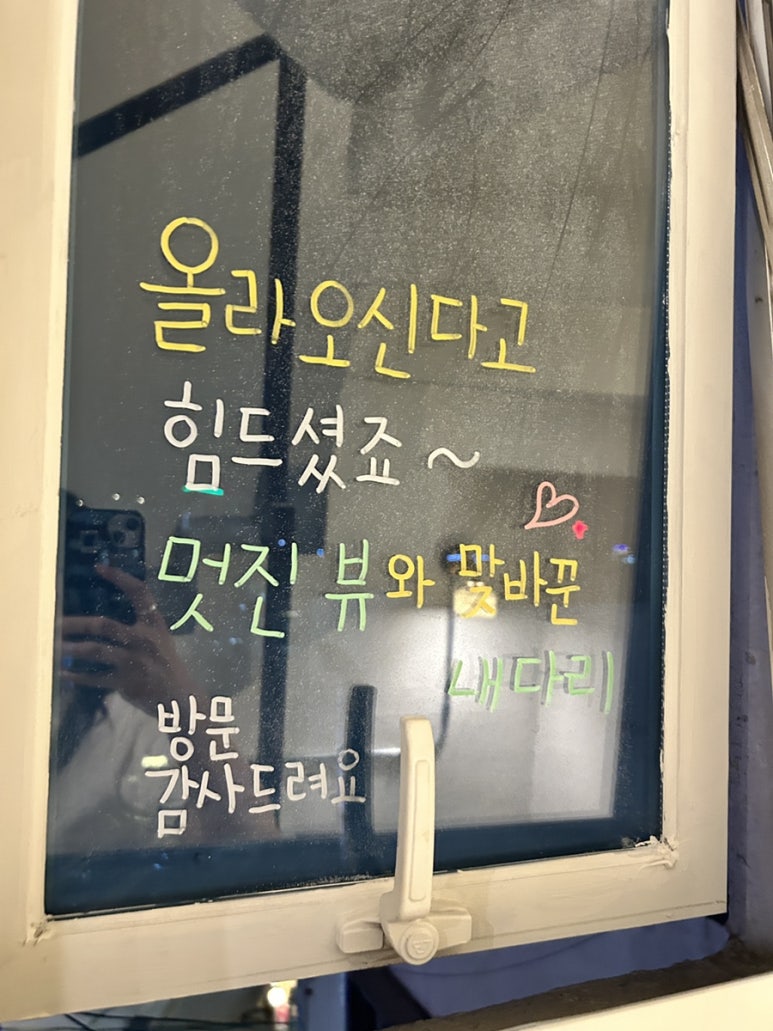 올라오신다고
힘드셨죠~
멋진 뷰와 맞바꾼
내다리
방문
감사드려요